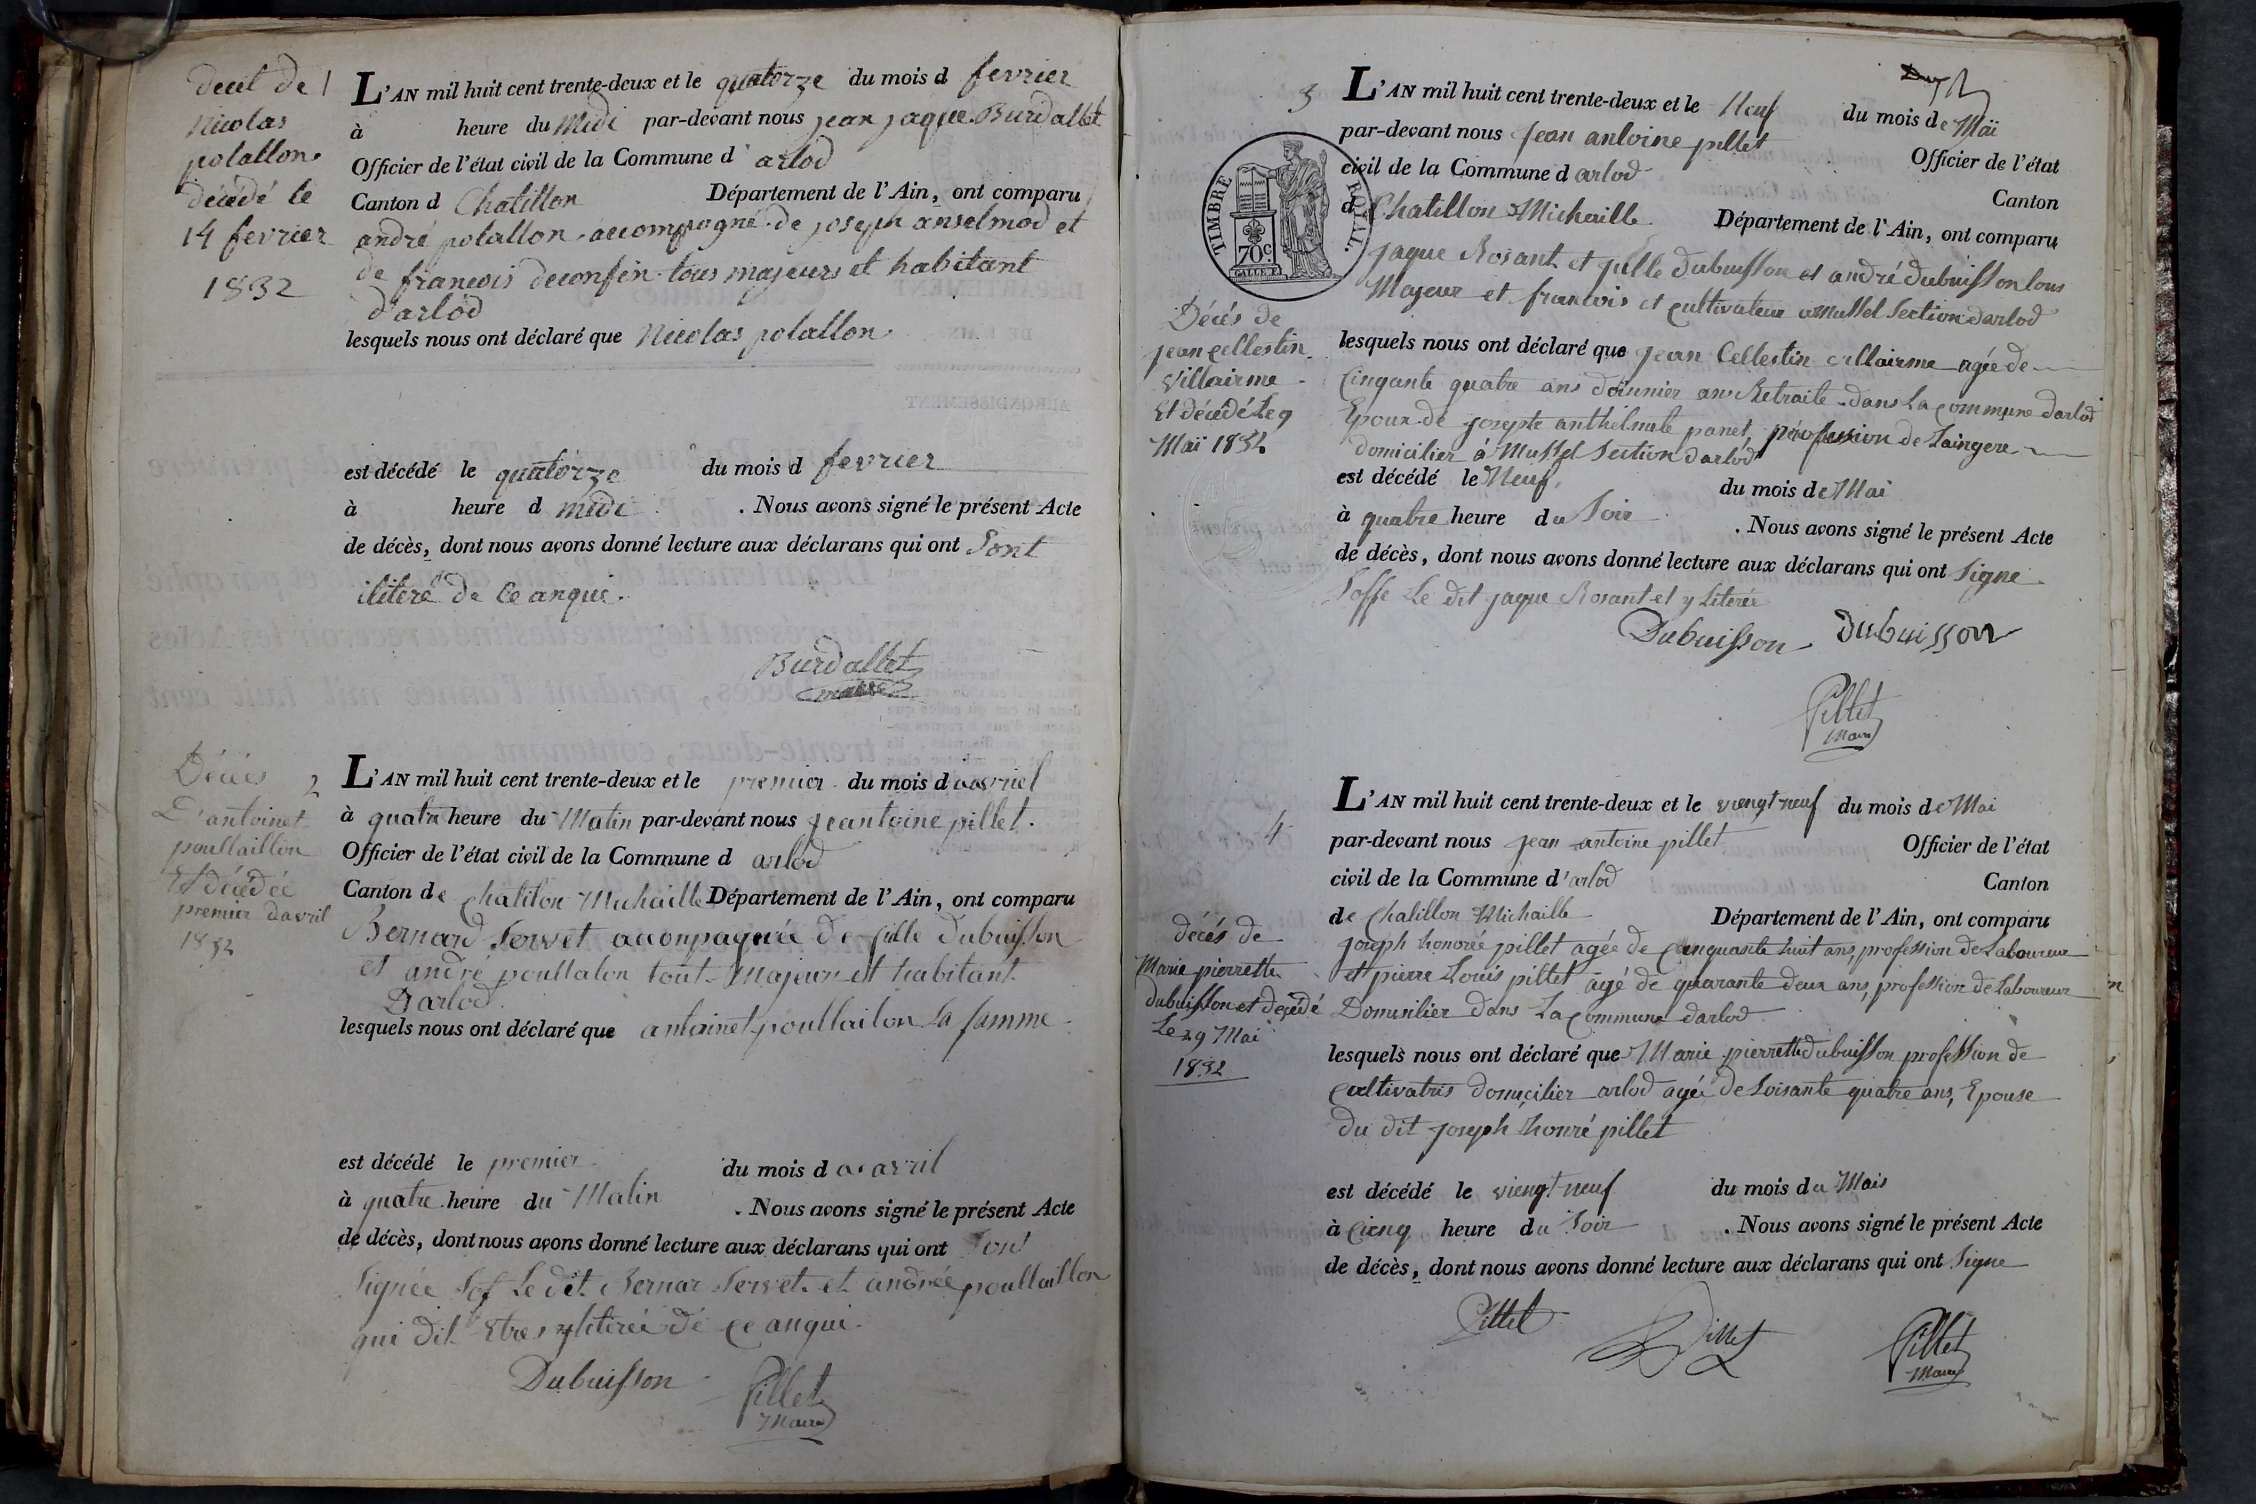 decet de 1
Nicolas
polallon
décédé le
14 fevrier
1832
L'AN mil huit cent trente-deux et le quatorze du mois d fevrier
à heure du Midi par-devant nous jean jaque Burdallet
Officier de l'état civil de la Commune d'arlod
Canton d Chatillon Département de l'Ain, ont comparu
andré polallon accompagné de joseph anselmod et
de francois deconfin tous majeurs et habitant
d'arlod
lesquels nous ont déclaré que Nicolas polallon
est décédé le quatorze du mois d fevrier
à heure d midi . Nous avons signé le présent Acte
de décès, dont nous avons donné lecture aux déclarans qui ont Sont
ilitéré de ce anquie.
Burdallet
maire
Décés 2
D'antoinet
poullaillon
Et décédée
premier davril
1832
L'AN mil huit cent trente-deux et le premier du mois d avriel
à quatre heure du Matin par-devant nous jeantoine pillet.
Officier de l'état civil de la Commune d arlod
Canton de Chatilon Michaille Département de l'Ain, ont comparu
Bernard Servet acconpagnée de jülle dubuisson
et andré poullalon tout Majeur et habitant
Darlod
lesquels nous ont déclaré que antoinet poullailon La famme
est décédé le premier du mois d avril
à quatre heure du Matin . Nous avons signé le présent Acte
de décès, dont nous avons donné lecture aux déclarans qui ont Sont
Signée Sof Le dit Bernar Servet et andrée poullaillon
qui dit Etres yliterée de ce anqui.
Dubuisson Pillet
Maire
3 L'AN mil huit cent trente-deux et le Neuf du mois de Maï
par-devant nous Jean antoine pillet Officier de l'état
civil de la Commune d arlod Canton
d Chatillon Michaille Département de l'Ain, ont comparu
TIMBRE ROYAL.
70c
GALLE F.
jaque Rosant et julle dubuisson et andré dubuisson tous
Majeur et francois et cultivateur a Mussel Section darlod
Décés de
jean cellestin
Villairme
Et décédé Le 9
Maï 1832
lesquels nous ont déclaré que jean Cellestin villairme agée de
Cinqante quatre ans doinnier an Retraite dans La commune darlod
Epoux de josepte anthelmate panet, pérofession de Laingere
domicilier à Mussel Section darlod
est décédé le Neuf du mois de Mai
à quatre heure du Soir . Nous avons signé le présent Acte
de décès, dont nous avons donné lecture aux déclarans qui ont Signe
Soffe Le dit jaque Rosant et yliterée
Dubuisson Dubuisson
Pillet
Maire
4 L'AN mil huit cent trente-deux et le viengt neuf du mois de Mai
par-devant nous jean antoine pillet Officier de l'état
civil de la Commune d'arlod Canton
de Chatillon Michaille Département de l'Ain, ont comparu
joseph honorée pillet agée de Cinquante huit ans, profession de Laboureur
et pierre Louis pillet agé de quarante deux ans, profession de Laboureur
Domisilier dans La commune darlod
décés de
Marie pierrette
dubuisson et decédé
Le 29 Mai
1832
lesquels nous ont déclaré que Marie pierrette dubuisson profession de
Cultivatris domicilier arlod agée de Soisante quatre ans, Epouse
du dit joseph honnré pillet
est décédé le viengt neuf du mois du Mais
à cienq heure du Soir . Nous avons signé le présent Acte
de décès, dont nous avons donné lecture aux déclarans qui ont Signe
Pittet Pillet Pillet
Maire